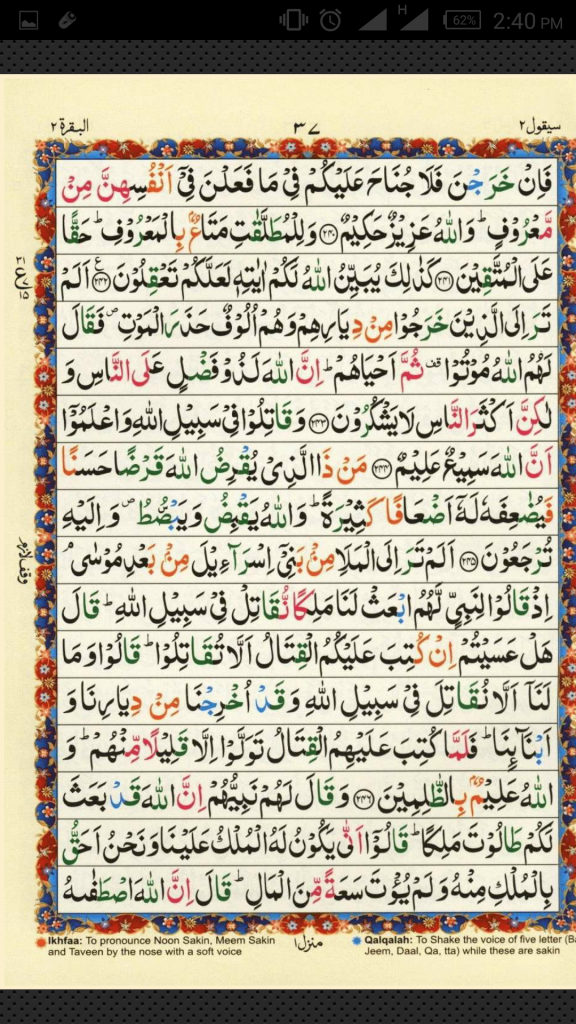 62% 2:40 PM
H
سيقول٢ ٣٧ البقرة٢
فَاِنْ خَرَجْنَ فَلَا جُنَاحَ عَلَيْكُمْ فِيْ مَا فَعَلْنَ فِيْۤ اَنْفُسِهِنَّ مِنْ
مَّعْرُوْفٍ ؕ وَاللّٰهُ عَزِيْزٌ حَكِيْمٌ ﴿۲۴۰﴾ وَلِلْمُطَلَّقٰتِ مَتَاعٌۢ بِالْمَعْرُوْفِ ؕ حَقًّا
عَلَى الْمُتَّقِيْنَ ﴿۲۴۱﴾ كَذٰلِكَ يُبَيِّنُ اللّٰهُ لَكُمْ اٰيٰتِهٖ لَعَلَّكُمْ تَعْقِلُوْنَ ﴿۲۴۲﴾ اَلَمْ
تَرَ اِلَى الَّذِيْنَ خَرَجُوْا مِنْ دِيَارِهِمْ وَهُمْ اُلُوْفٌ حَذَرَ الْمَوْتِ ۪ فَقَالَ
لَهُمُ اللّٰهُ مُوْتُوْا قف ثُمَّ اَحْيَاهُمْ ؕ اِنَّ اللّٰهَ لَذُوْ فَضْلٍ عَلَى النَّاسِ وَ
لٰكِنَّ اَكْثَرَ النَّاسِ لَا يَشْكُرُوْنَ ﴿۲۴۳﴾ وَقَاتِلُوْا فِيْ سَبِيْلِ اللّٰهِ وَاعْلَمُوْۤا
اَنَّ اللّٰهَ سَمِيْعٌ عَلِيْمٌ ﴿۲۴۴﴾ مَنْ ذَا الَّذِيْ يُقْرِضُ اللّٰهَ قَرْضًا حَسَنًا
فَيُضٰعِفَهٗ لَهٗۤ اَضْعَافًا كَثِيْرَةً ؕ وَاللّٰهُ يَقْبِضُ وَيَبْصُۜطُ ۪ وَاِلَيْهِ
تُرْجَعُوْنَ ﴿۲۴۵﴾ اَلَمْ تَرَ اِلَى الْمَلَاِ مِنْۢ بَنِيْۤ اِسْرَآءِيْلَ مِنْۢ بَعْدِ مُوْسٰى ۘ
اِذْ قَالُوْا لِنَبِيٍّ لَّهُمُ ابْعَثْ لَنَا مَلِكًا نُّقَاتِلْ فِيْ سَبِيْلِ اللّٰهِ ؕ قَالَ
هَلْ عَسَيْتُمْ اِنْ كُتِبَ عَلَيْكُمُ الْقِتَالُ اَلَّا تُقَاتِلُوْا ؕ قَالُوْا وَمَا
لَنَاۤ اَلَّا نُقَاتِلَ فِيْ سَبِيْلِ اللّٰهِ وَقَدْ اُخْرِجْنَا مِنْ دِيَارِنَا وَ
اَبْنَآئِنَا ؕ فَلَمَّا كُتِبَ عَلَيْهِمُ الْقِتَالُ تَوَلَّوْا اِلَّا قَلِيْلًا مِّنْهُمْ ؕ وَ
اللّٰهُ عَلِيْمٌۢ بِالظّٰلِمِيْنَ ﴿۲۴۶﴾ وَقَالَ لَهُمْ نَبِيُّهُمْ اِنَّ اللّٰهَ قَدْ بَعَثَ
لَكُمْ طَالُوْتَ مَلِكًا ؕ قَالُوْۤا اَنّٰى يَكُوْنُ لَهُ الْمُلْكُ عَلَيْنَا وَنَحْنُ اَحَقُّ
بِالْمُلْكِ مِنْهُ وَلَمْ يُؤْتَ سَعَةً مِّنَ الْمَالِ ؕ قَالَ اِنَّ اللّٰهَ اصْطَفٰىهُ
منزل١
Ikhfaa: To pronounce Noon Sakin, Meem Sakin
and Taveen by the nose with a soft voice
Qalqalah: To Shake the voice of five letter (Ba
Jeem, Daal, Qa, tta) while these are sakin